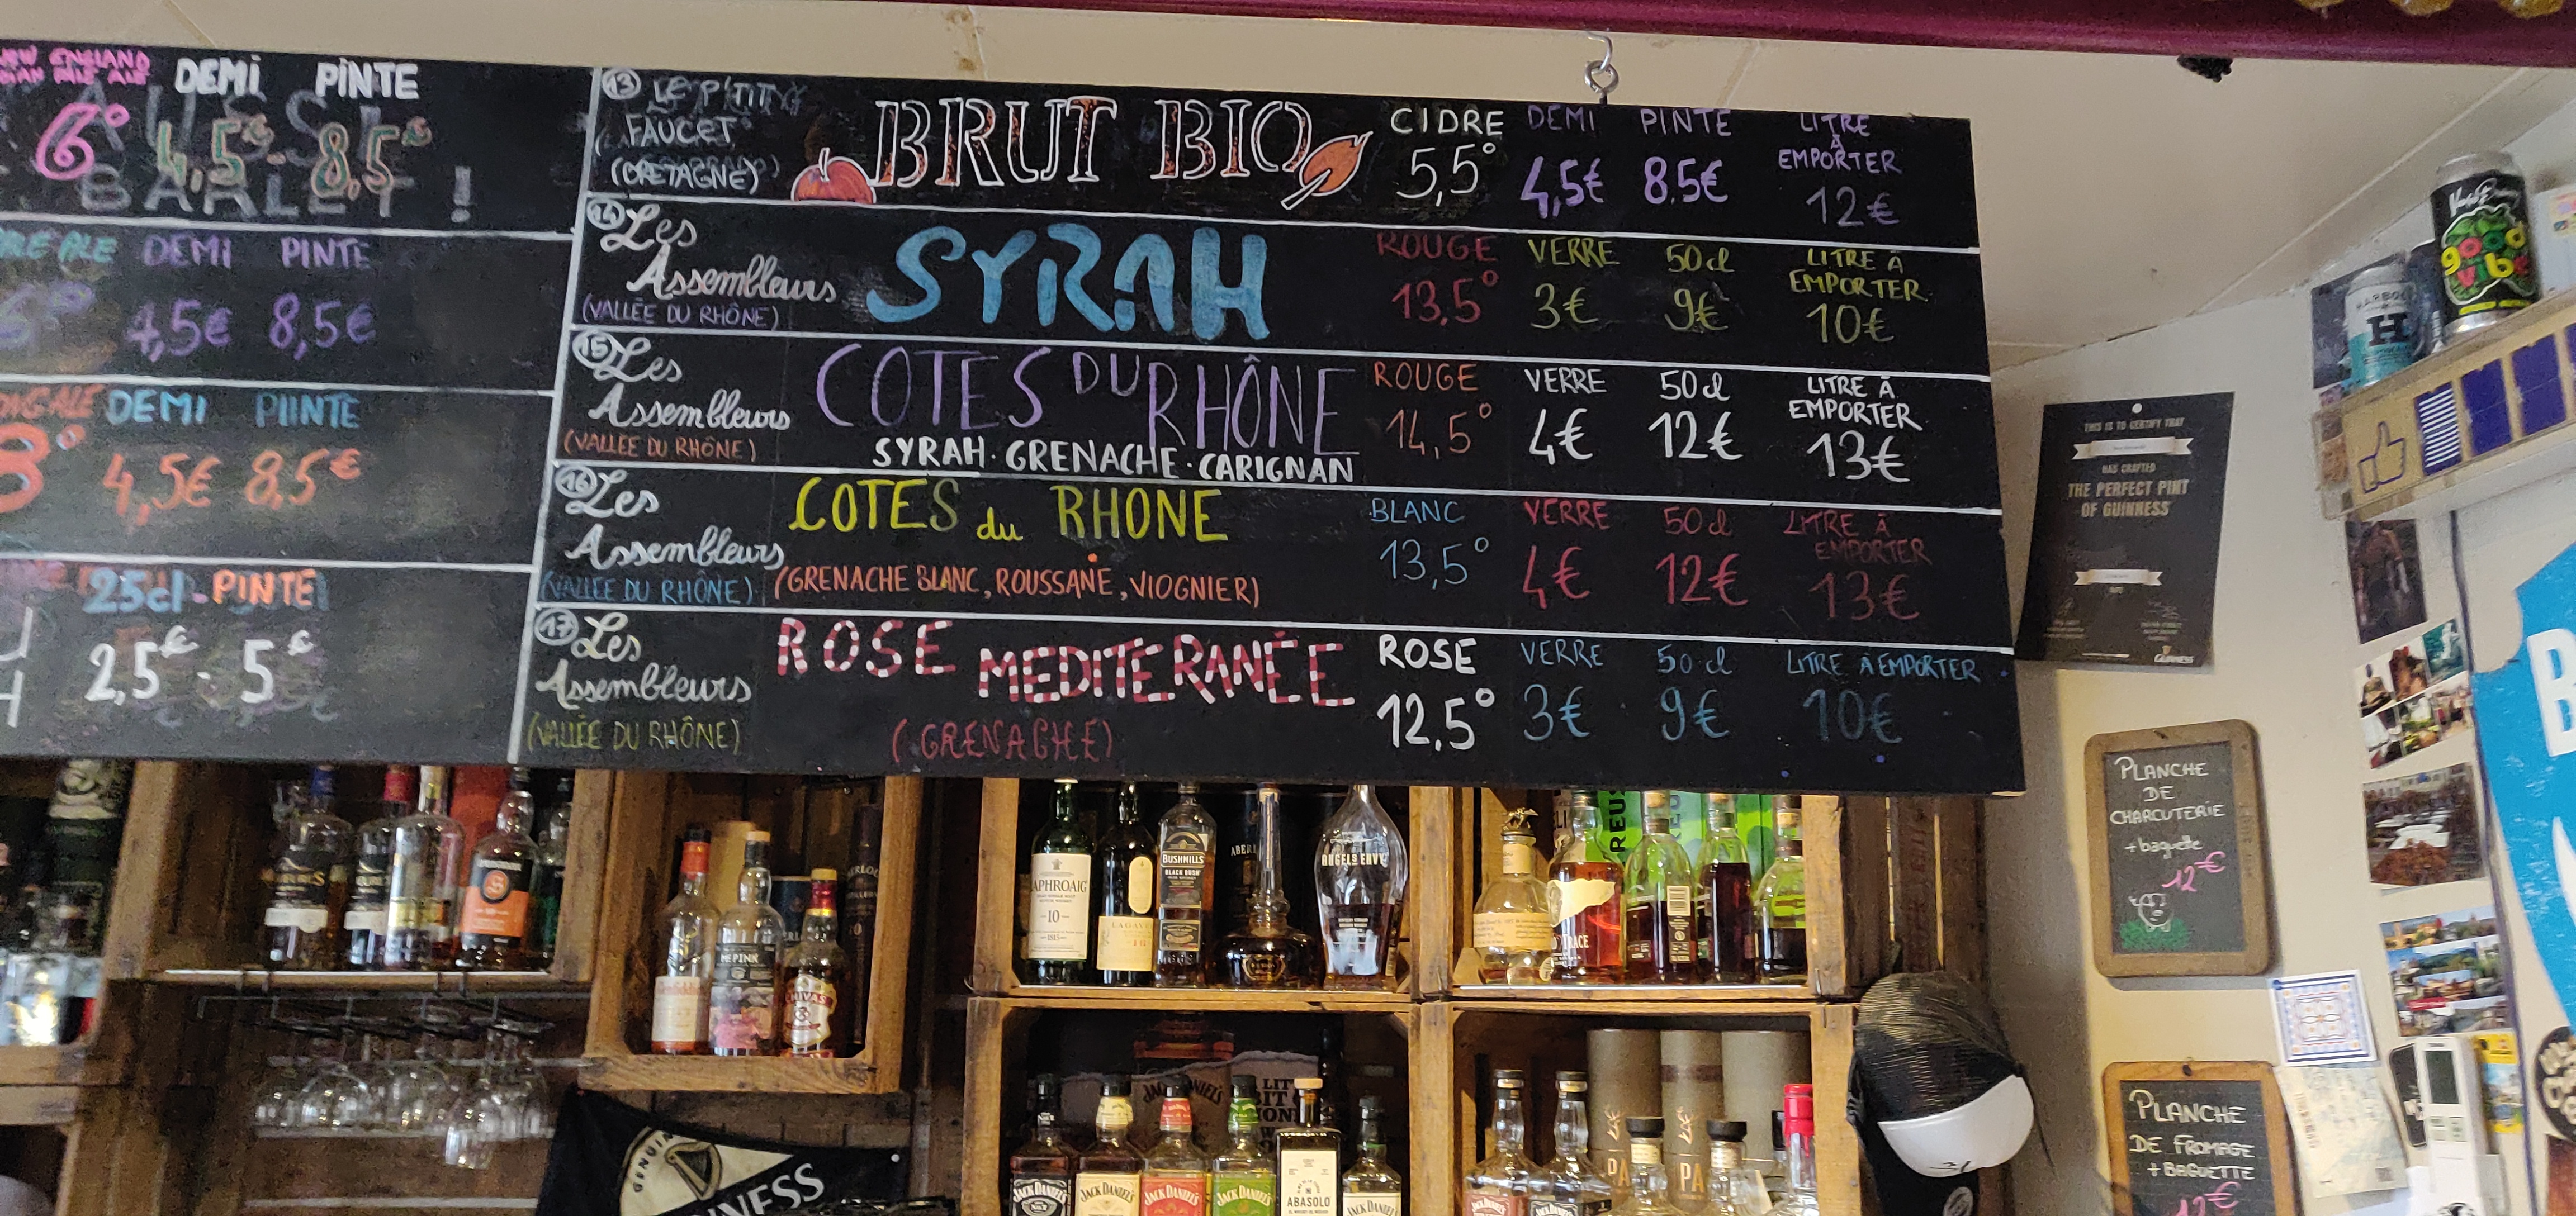 NEW ENGLAND
PALE ALE
DEMI PINTE
6° 4,5€ 8,5€
BARLET !
DEMI PINTE
4,5€ 8,5€
DEMI PIINTE
4,5€ 8,5€
25cl - PINTE
2,5€ . 5€
13 LE P'TIT
FAUCET
(BRETAGNE)
BRUT BIO
CIDRE DEMI PINTE LITRE
À
EMPORTER
5,5° 4,5€ 8.5€ 12€
14 Les
Assembleurs
(VALLÉE DU RHÔNE)
SYRAH
ROUGE VERRE 50cl LITRE À
EMPORTER
13,5° 3€ 9€ 10€
15 Les
Assembleurs
(VALLÉE DU RHÔNE)
COTES DU RHÔNE
SYRAH · GRENACHE · CARIGNAN
ROUGE VERRE 50cl LITRE À
EMPORTER
14,5° 4€ 12€ 13€
16 Les
Assembleurs
(VALLÉE DU RHÔNE)
COTES du RHONE
(GRENACHE BLANC, ROUSSANE, VIOGNIER)
BLANC VERRE 50cl LITRE À
EMPORTER
13,5° 4€ 12€ 13€
17 Les
Assembleurs
(VALLÉE DU RHÔNE)
ROSE MEDITERANÉE
(GRENACHE)
ROSE VERRE 50cl LITRE À EMPORTER
12,5° 3€ 9€ 10€
THIS IS TO CERTIFY THAT
HAS CRAFTED
THE PERFECT PINT
OF GUINNESS
GUINNESS
good
vibe
H
PLANCHE
DE
CHARCUTERIE
+ baguette
12€
PLANCHE
DE FROMAGE
+ BAGUETTE
12€
APHROAIG
10
1815
BUSHMILLS
BLACK BUSH
ABERL
ANGEL'S ENVY
TRACE
CHIVAS
GENUIN
NESS
JACK DANIEL'S
JACK DANIEL'S
JACK DANIEL'S
JACK DANIEL'S
JACK DANIEL'S
ABASOLO
JACK DANIEL'S
PA
PA